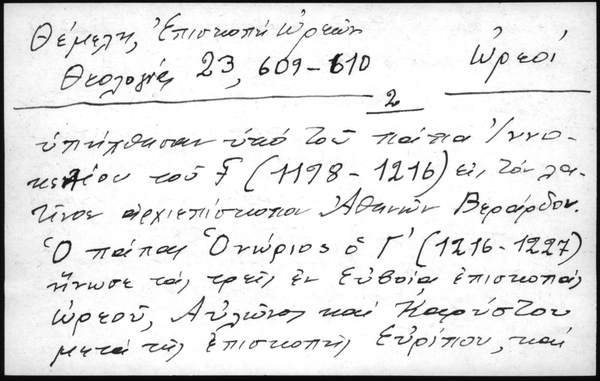 Θέμελη, Ἐπισκοπὴ Ὠρεῶν
Θεολογία 23, 609-610
Ὠρεοί
2
ὑπήχθησαν ὑπό τοῦ πάπα Ἰννο-
κεντίου τοῦ Γ (1198-1216) εἰς τόν λα-
τῖνον ἀρχιεπίσκοπον Ἀθηνῶν Βεράρδον.
Ὁ πάπας Ὁνώριος ὁ Γ' (1216-1227)
ἥνωσε τάς τρεῖς ἐν Εὐβοίᾳ ἐπισκοπάς
Ὠρεοῦ, Αὐλῶνος καί Καρύστου
μετά τῆς ἐπισκοπῆς Εὐρίπου, καί